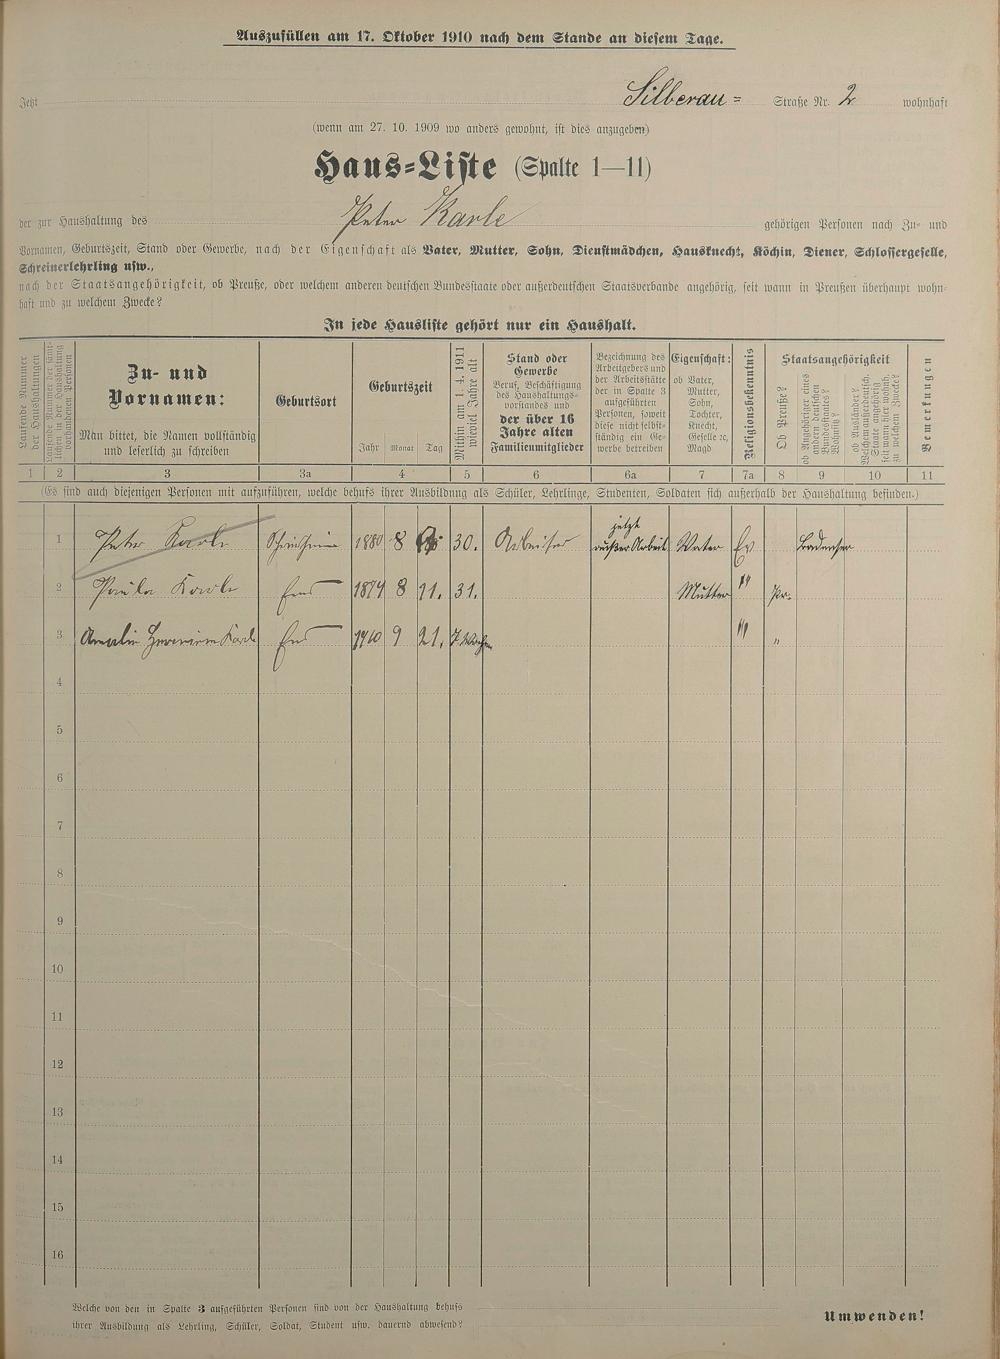 Auszufüllen am 17. Oktober 1910 nach dem Stande an diesem Tage.
Jetzt Silberau= Straße Nr. 2 wohnhaft
(wenn am 27. 10. 1909 wo anders gewohnt, ist dies anzugeben)
Haus=Liste (Spalte 1—11)
der zur Haushaltung des Peter Karle gehörigen Personen nach Zu- und
Vornamen, Geburtszeit, Stand oder Gewerbe, nach der Eigenschaft als Vater, Mutter, Sohn, Dienstmädchen, Hausknecht, Köchin, Diener, Schlossergeselle,
Schreinerlehrling usw.,
nach der Staatsangehörigkeit, ob Preuße, oder welchem anderen deutschen Bundesstaate oder außerdeutschen Staatsverbande angehörig, seit wann in Preußen überhaupt wohn-
haft und zu welchem Zwecke?
In jede Hausliste gehört nur ein Haushalt.
Laufende Nummer der Haushaltungen
Laufende Nummer der sämt-
lichen in der Haushaltung
vorhandenen Personen
Zu- und
Vornamen:
Man bittet, die Namen vollständig
und leserlich zu schreiben
Geburtsort
Geburtszeit
Jahr Monat Tag
Mithin am 1. 4. 1911
wieviel Jahre alt
Stand oder
Gewerbe
Beruf, Beschäftigung
des Haushaltungs-
vorstandes und
der über 16
Jahre alten
Familienmitglieder
Bezeichnung des
Arbeitgebers und
der Arbeitsstätte
der in Spalte 3
aufgeführten
Personen, soweit
diese nicht selbst-
ständig ein Ge-
werbe betreiben
Eigenschaft:
ob Vater,
Mutter,
Sohn,
Tochter,
Knecht,
Geselle ꝛc,
Magd
Religionsbekenntnis
Staatsangehörigkeit
Ob Preuße?
ob Angehöriger eines
andern deutschen
Bundesstaates?
Welches?
ob Ausländer?
Welchem außerdeutsch.
Staate angehörig
seit wann hier wohnh.
zu welchem Zwecke?
Bemerkungen
1 2 3 3a 4 5 6 6a 7 7a 8 9 10 11
(Es sind auch diejenigen Personen mit aufzuführen, welche behufs ihrer Ausbildung als Schüler, Lehrlinge, Studenten, Soldaten sich außerhalb der Haushaltung befinden.)
1 Peter Karle 1880 8 30. Arbeiter jetzt außer Arbeit Vater Ev Badenser
2 Paula Karle Ems 1879 8 11. 31. Mutter " Pr.
3 Amalie Hermine Karle Ems 1910 9 21. 7 Wochen " "
4
5
6
7
8
9
10
11
12
13
14
15
16
Welche von den in Spalte 3 aufgeführten Personen sind von der Haushaltung behufs
ihrer Ausbildung als Lehrling, Schüler, Soldat, Student usw. dauernd abwesend?
Umwenden!